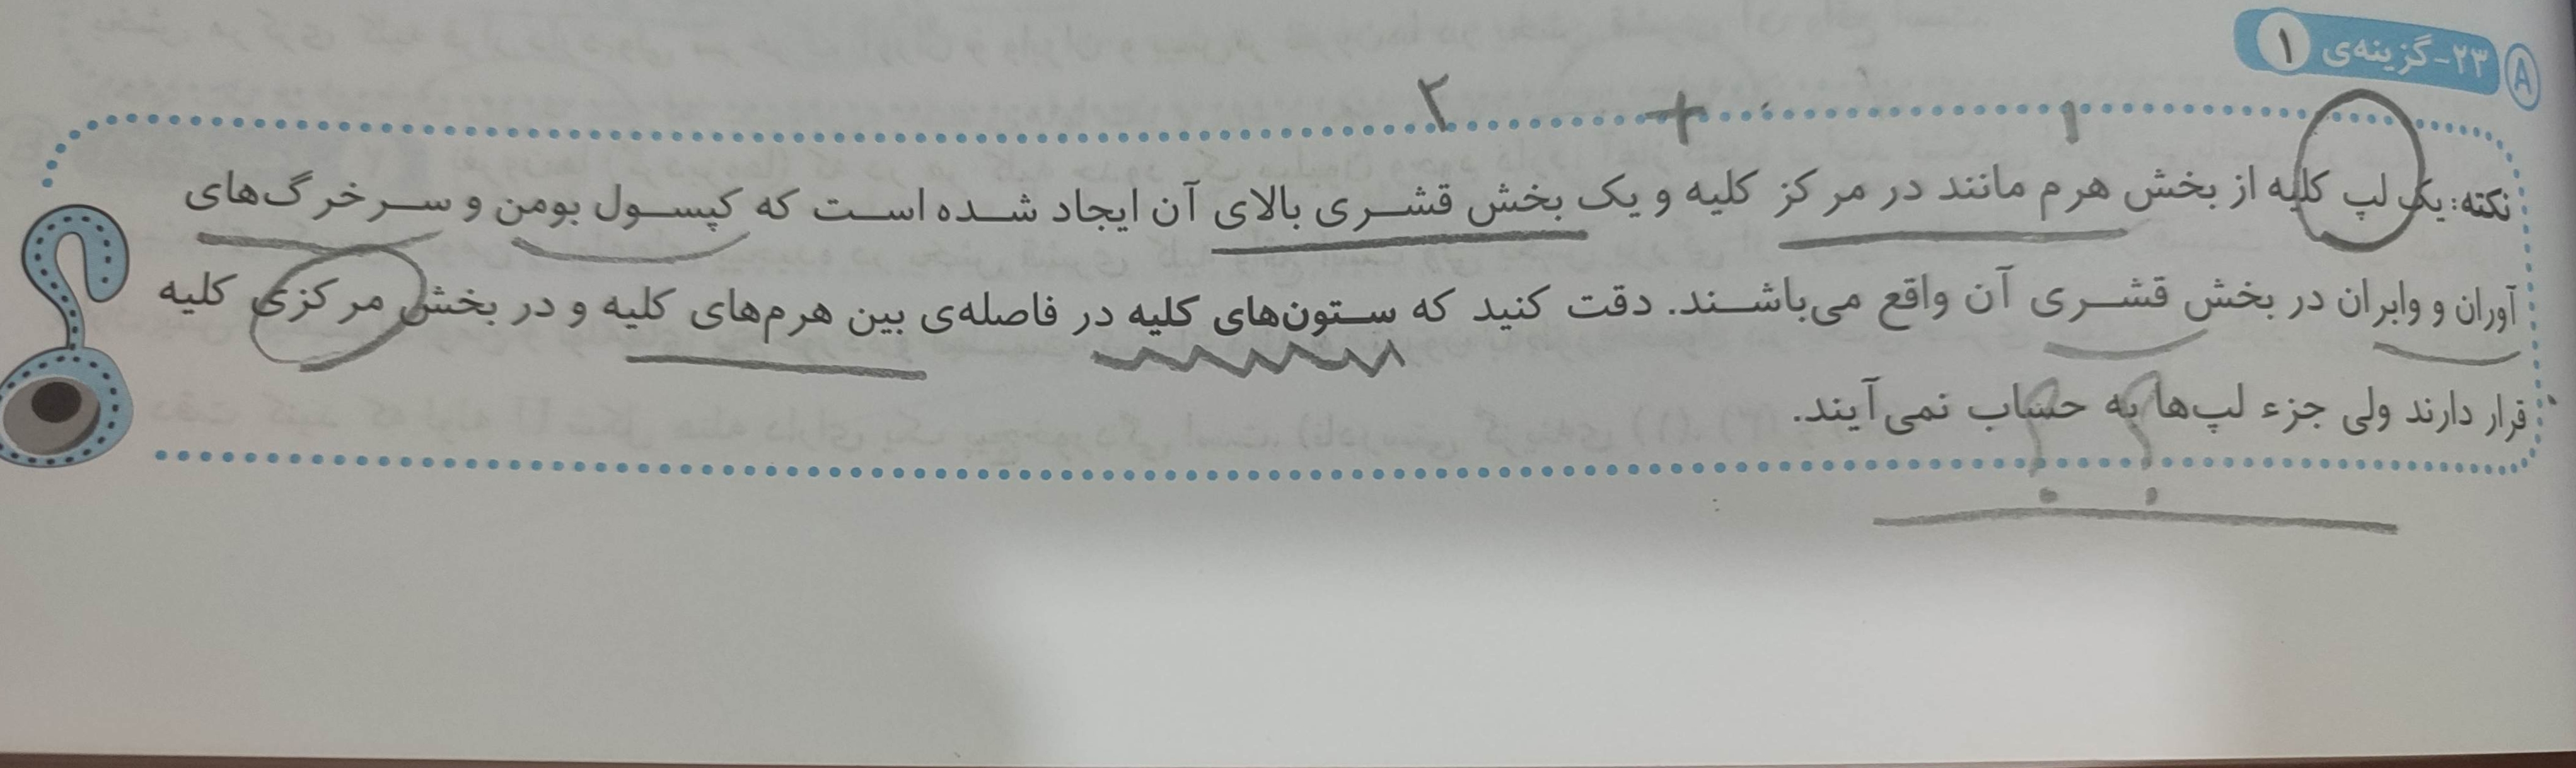 A ۲۳-گزینه‌ی ۱
۱ + ۲
نکته: یک لپ کلیه از بخش هرم مانند در مرکز کلیه و یک بخش قشری بالای آن ایجاد شده است که کپسول بومن و سرخرگ‌های
آوران و وابران در بخش قشری آن واقع می‌باشند. دقت کنید که ستون‌های کلیه در فاصله‌ی بین هرم‌های کلیه و در بخش مرکزی کلیه
قرار دارند ولی جزء لپ‌ها به حساب نمی‌آیند.
؟؟